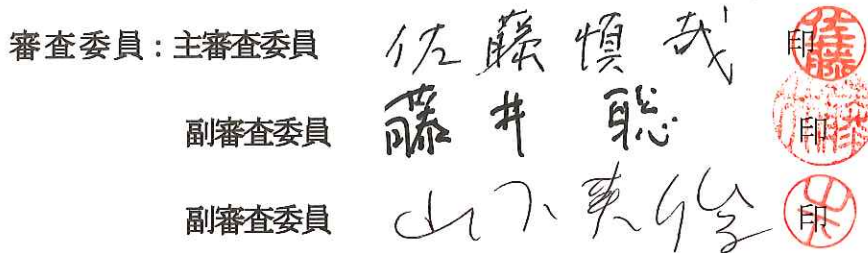 審査委員：主審査委員 佐藤慎哉 印
副審査委員 藤井 聡 印
副審査委員 山下英俊 印